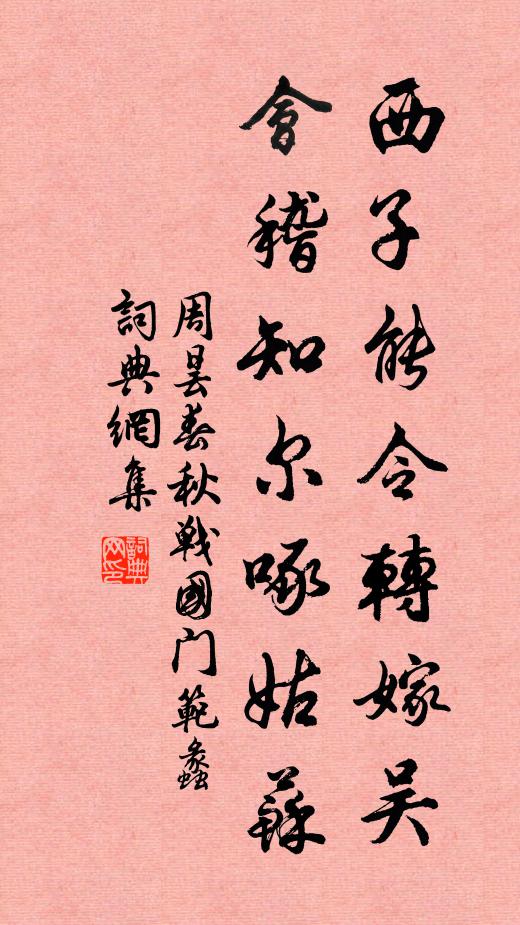 西子能令轉嫁吴
會稽知尔啄姑蘇
周昙春秋戰國门範蠡
詞典網集
詞典网印